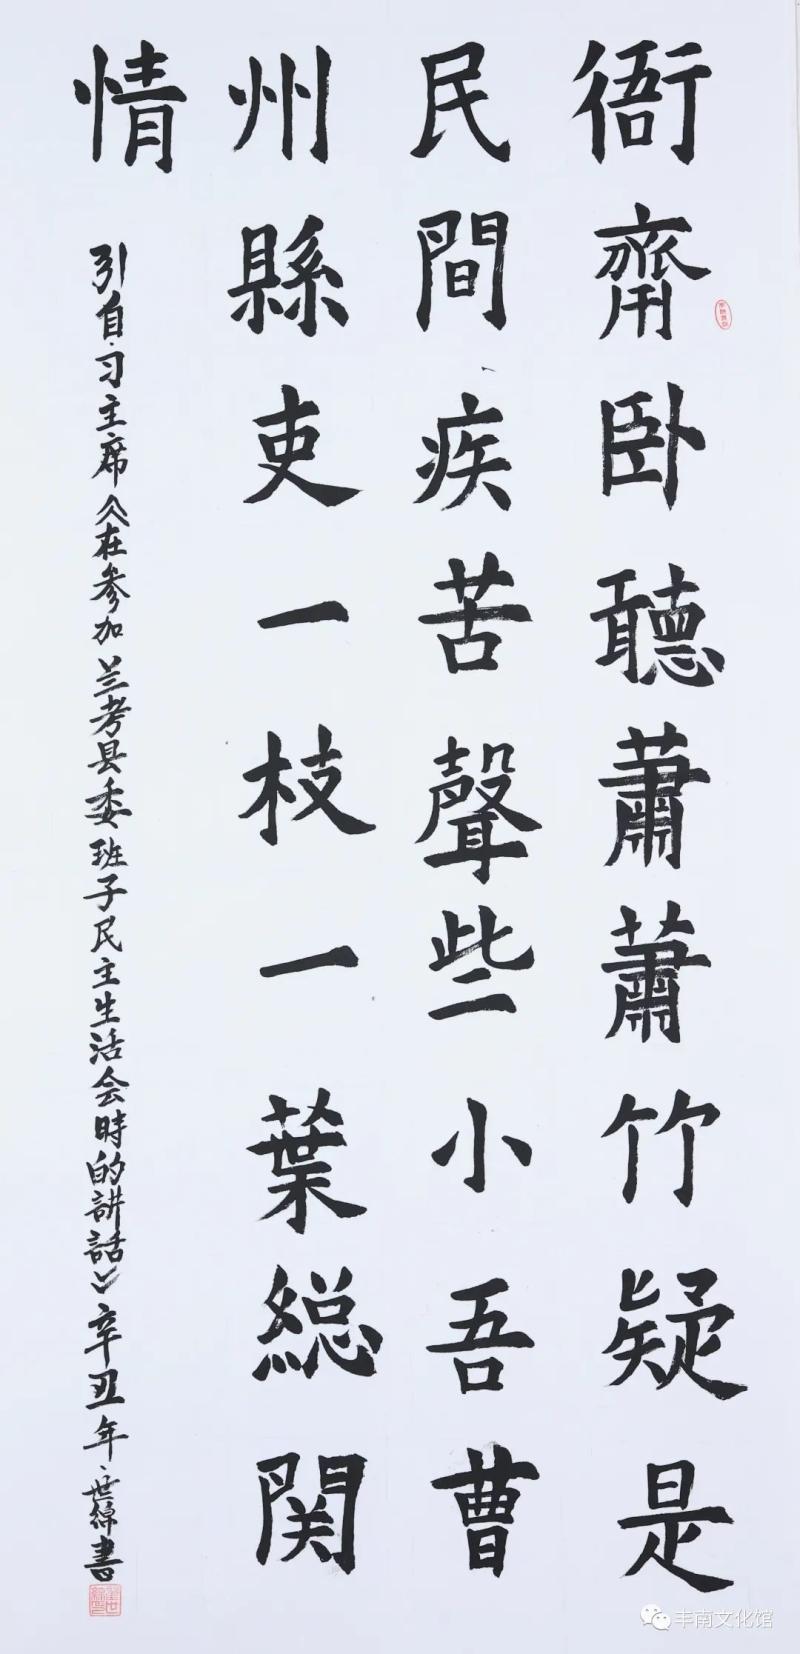 衙齋卧聽蕭蕭竹疑是
民間疾苦聲些小吾曹
州縣吏一枝一葉総関
情
引自习主席《在参加兰考县委班子民主生活会時的講話》辛丑年世綿書
丰南文化馆